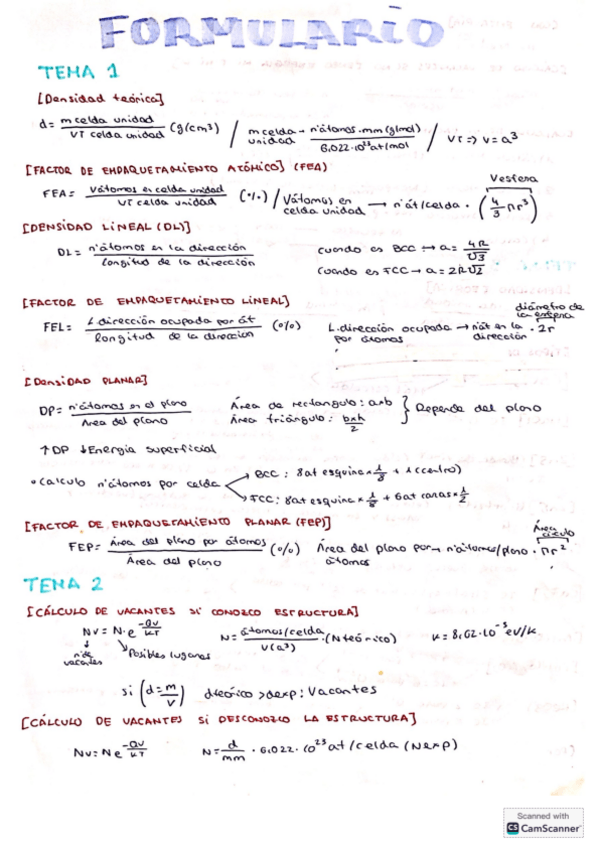 FORMULARIO
TEMA 1
[Densidad teórica]
d = m celda unidad / VT celda unidad (g/cm³) / m celda unidad → nºátomos·mm (g/mol) / 6,022·10²³ at/mol / VT => V = a³
[FACTOR DE EMPAQUETAMIENTO ATÓMICO] (FEA)
FEA = Vátomos en celda unidad / VT celda unidad (%) / Vátomos en celda unidad → nºat/celda · (4/3 π r³) Vesfera
[DENSIDAD LINEAL (DL)]
DL = nºátomos en la dirección / longitud de la dirección
cuando es BCC → a = 4R/√3
cuando es FCC → a = 2R√2
[FACTOR DE EMPAQUETAMIENTO LINEAL]
FEL = L dirección ocupada por át / longitud de la dirección (%) L.dirección ocupada por átomos → nºat en la dirección · 2r diámetro de la esfera
[DENSIDAD PLANAR]
DP = nºátomos en el plano / Área del plano
Área de rectangulo: a×b
Área triángulo: b×h/2 } Depende del plano
↑DP ↓Energía superficial
• Calculo nºátomos por celda
BCC: 8at esquina × 1/8 + 1 (centro)
FCC: 8at esquina × 1/8 + 6at caras × 1/2
[FACTOR DE EMPAQUETAMIENTO PLANAR (FEP)]
FEP = Área del plano por átomos / Área del plano (%) Área del plano por átomos → nºatomos/plano · πr² Área círculo
TEMA 2
[CÁLCULO DE VACANTES SI CONOZCO ESTRUCTURA]
Nv = N·e^(-Qv/KT) N = átomos/celda / V(a³) · (N teórico) K = 8,62·10⁻⁵ eV/K
nº de vacantes
Posibles lugares
si (d = m/V) dteórico > dexp : Vacantes
[CÁLCULO DE VACANTES SI DESCONOZCO LA ESTRUCTURA]
Nv = N e^(-Qv/KT) N = d/mm · 6,022·10²³ at/celda (Nexp)
Scanned with
CS CamScanner